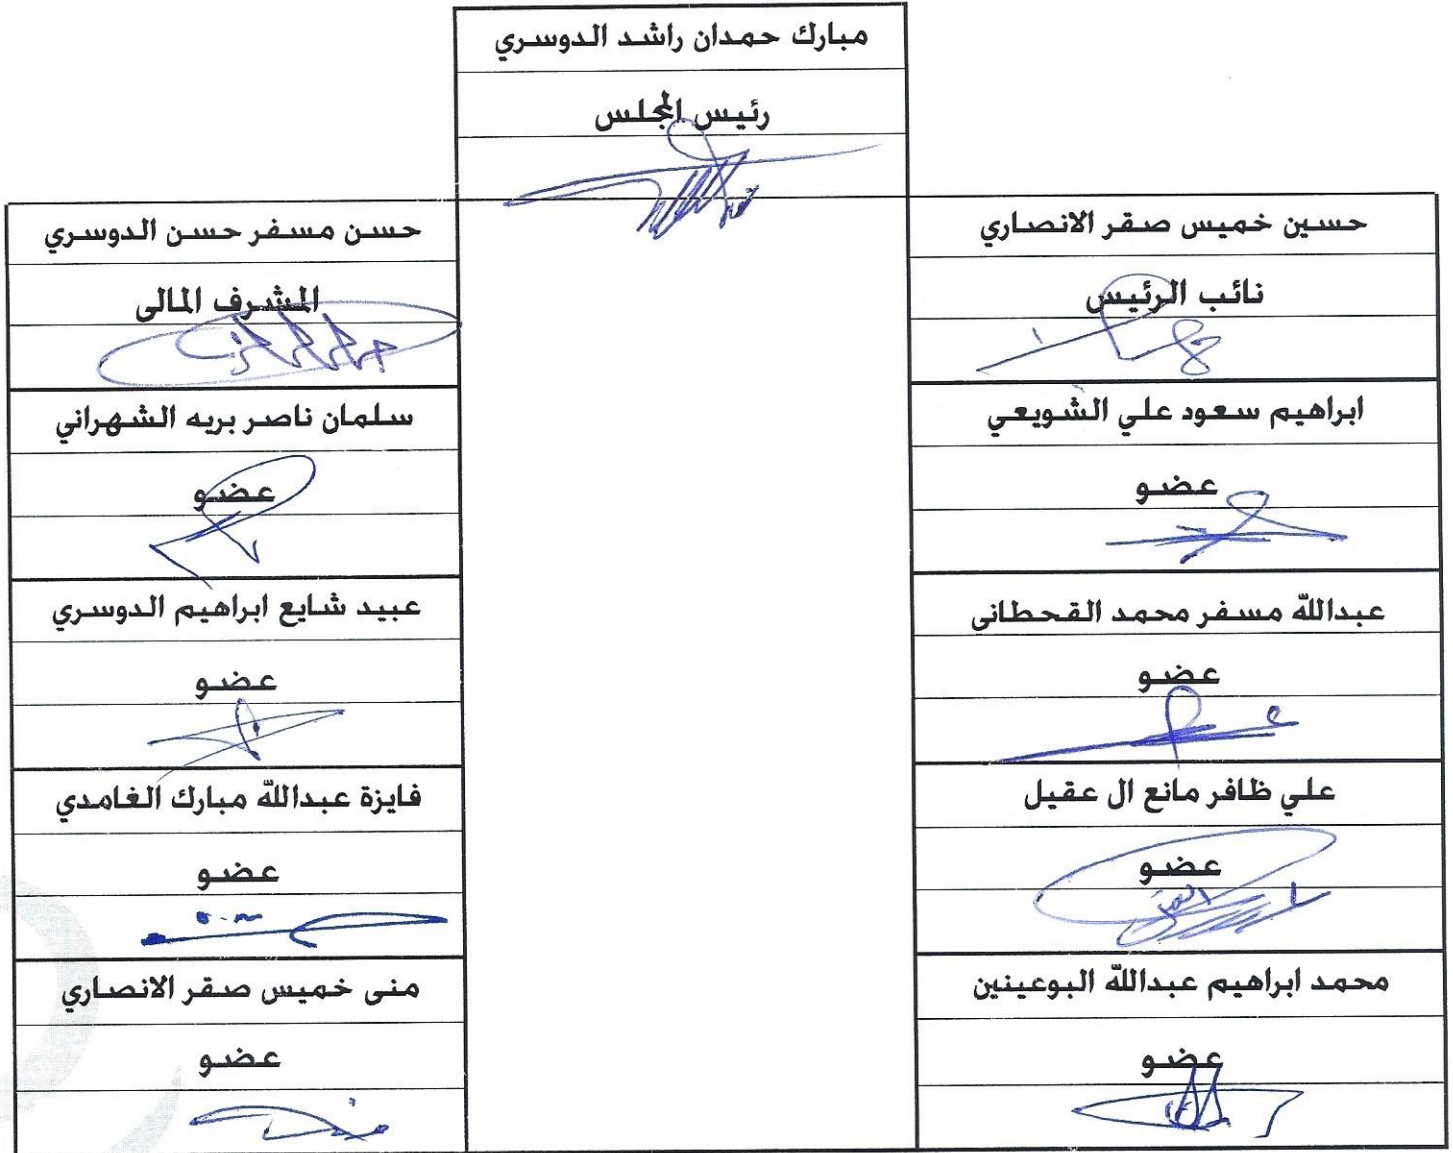 مبارك حمدان راشد الدوسري
رئيس المجلس
حسين خميس صقر الانصاري
نائب الرئيس
ابراهيم سعود علي الشويعي
عضو
عبدالله مسفر محمد القحطانى
عضو
علي ظافر مانع ال عقيل
عضو
محمد ابراهيم عبدالله البوعينين
عضو
حسن مسفر حسن الدوسري
المشرف المالى
سلمان ناصر بريه الشهراني
عضو
عبيد شايع ابراهيم الدوسري
عضو
فايزة عبدالله مبارك الغامدي
عضو
منى خميس صقر الانصاري
عضو